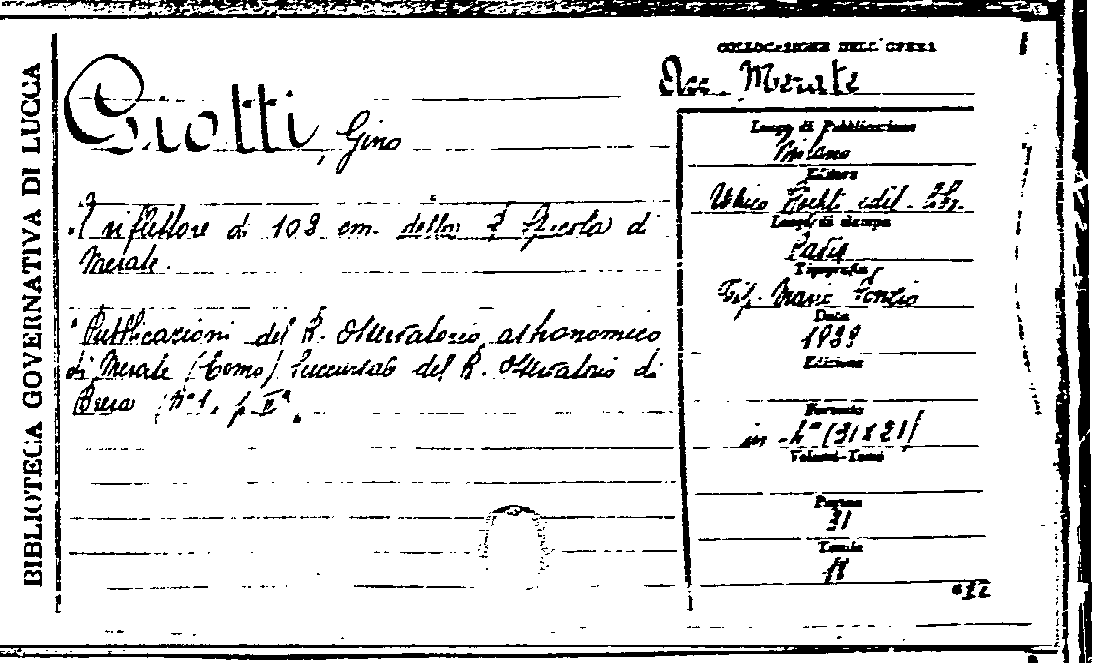 BIBLIOTECA GOVERNATIVA DI LUCCA
COLLOCAZIONE DELL'OPERA
Oss. Merate
Giotti, Gino
Il riflettore di 102 cm. della R. Specola di
Merate.
Pubblicazioni del R. Osservatorio astronomico
di Merate (Como) Succursale del R. Osservatorio di
Brera, N° 1, p. IIª.
Luogo di Pubblicazione
Milano
Editore
Ulrico Hoepli edit. lib.
Luogo di stampa
Pavia
Tipografia
Tip. Mario Ponzio
Data
1939
Edizione
Formato
in-4° (31 x 21)
Volumi-Tomi
Pagine
31
Tavole